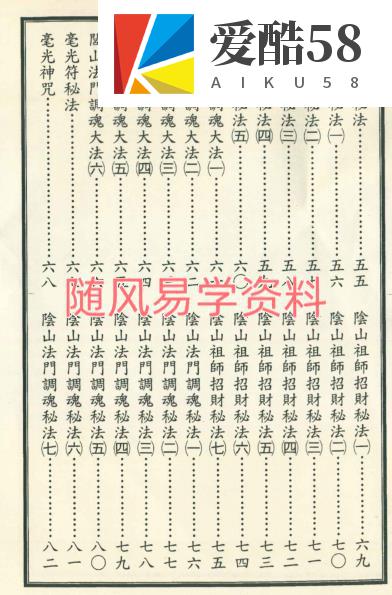 爱酷58
AIKU58
秘法……五五
秘法㈠……五六
秘法㈡……五
秘法㈢……五八
秘法㈣……五九
秘法㈤……六〇
魂大法㈠……六
調魂大法㈡……六二
調魂大法㈢……六
調魂大法㈣……六四
調魂大法㈤……六
閭山法門調魂大法㈥……六六
毫光符秘法……六
毫光神咒……六八
陰山祖師招財秘法㈠……六九
陰山祖師招財秘法㈡……七〇
陰山祖師招財秘法㈢……七一
陰山祖師招財秘法㈣……七二
陰山祖師招財秘法㈤……七三
陰山祖師招財秘法㈥……七四
陰山祖師招財秘法㈦……七五
陰山法門調魂秘法㈠……七六
陰山法門調魂秘法㈡……七七
陰山法門調魂秘法㈢……七八
陰山法門調魂秘法㈣……七九
陰山法門調魂秘法㈤……八〇
陰山法門調魂秘法㈥……八一
陰山法門調魂秘法㈦……八二
随风易学资料